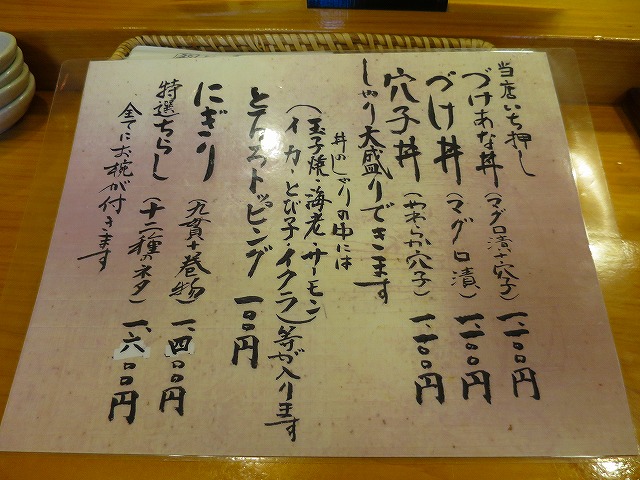 当店いち押し
づけあな丼(マグロ漬+穴子)一、一〇〇円
づけ丼(マグロ漬)一、一〇〇円
穴子丼(やわらか穴子)一、一〇〇円
しゃり大盛りできます
丼のしゃりの中には
(玉子焼・海老・サーモン
イカ・とび子・イクラ)等が入ります
とろろトッピング 一〇〇円
にぎり(九貫+巻物)一、四〇〇円
特選ちらし(十二種のネタ)一、六〇〇円
全てにお椀が付きます